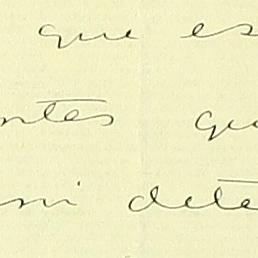 que es
ntes qu
mi dete